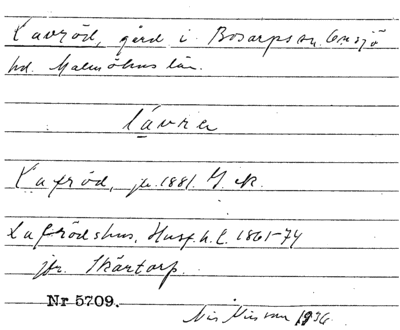 Lavröd, gård i Bosarps sn. Onsjö
hd. Malmöhus län.
låvrer
Lafröd, jr. 1881. G. K.
Lafrödshus, Husf. h. l. 1861-74
jfr. Skärtorp.
Nr 5709.
Nils Nilsson 1936.